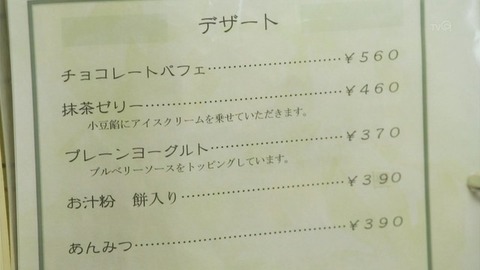 デザート
チョコレートパフェ……………………￥５６０
抹茶ゼリー……………………………￥４６０
小豆餡にアイスクリームを乗せていただきます。
プレーンヨーグルト……………………￥３７０
ブルベリーソースをトッピングしています。
お汁粉　餅入り…………………………￥３９０
あんみつ………………………………￥３９０